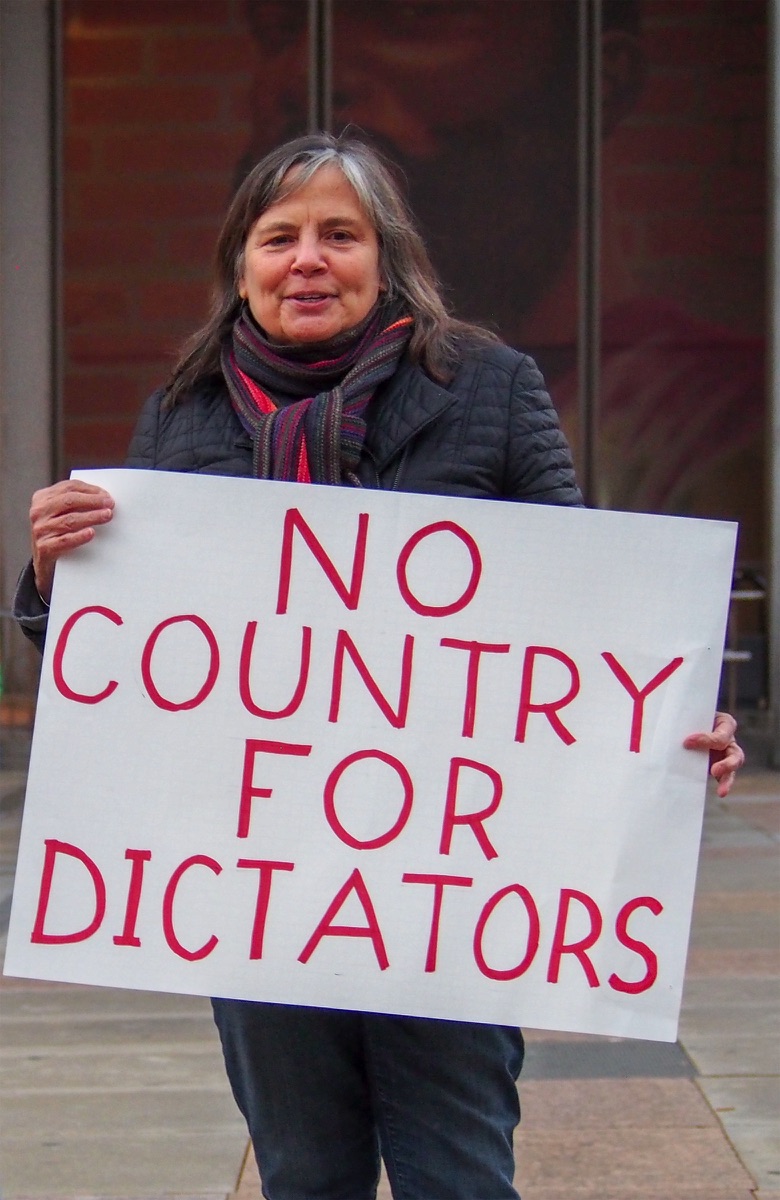 NO
COUNTRY
FOR
DICTATORS